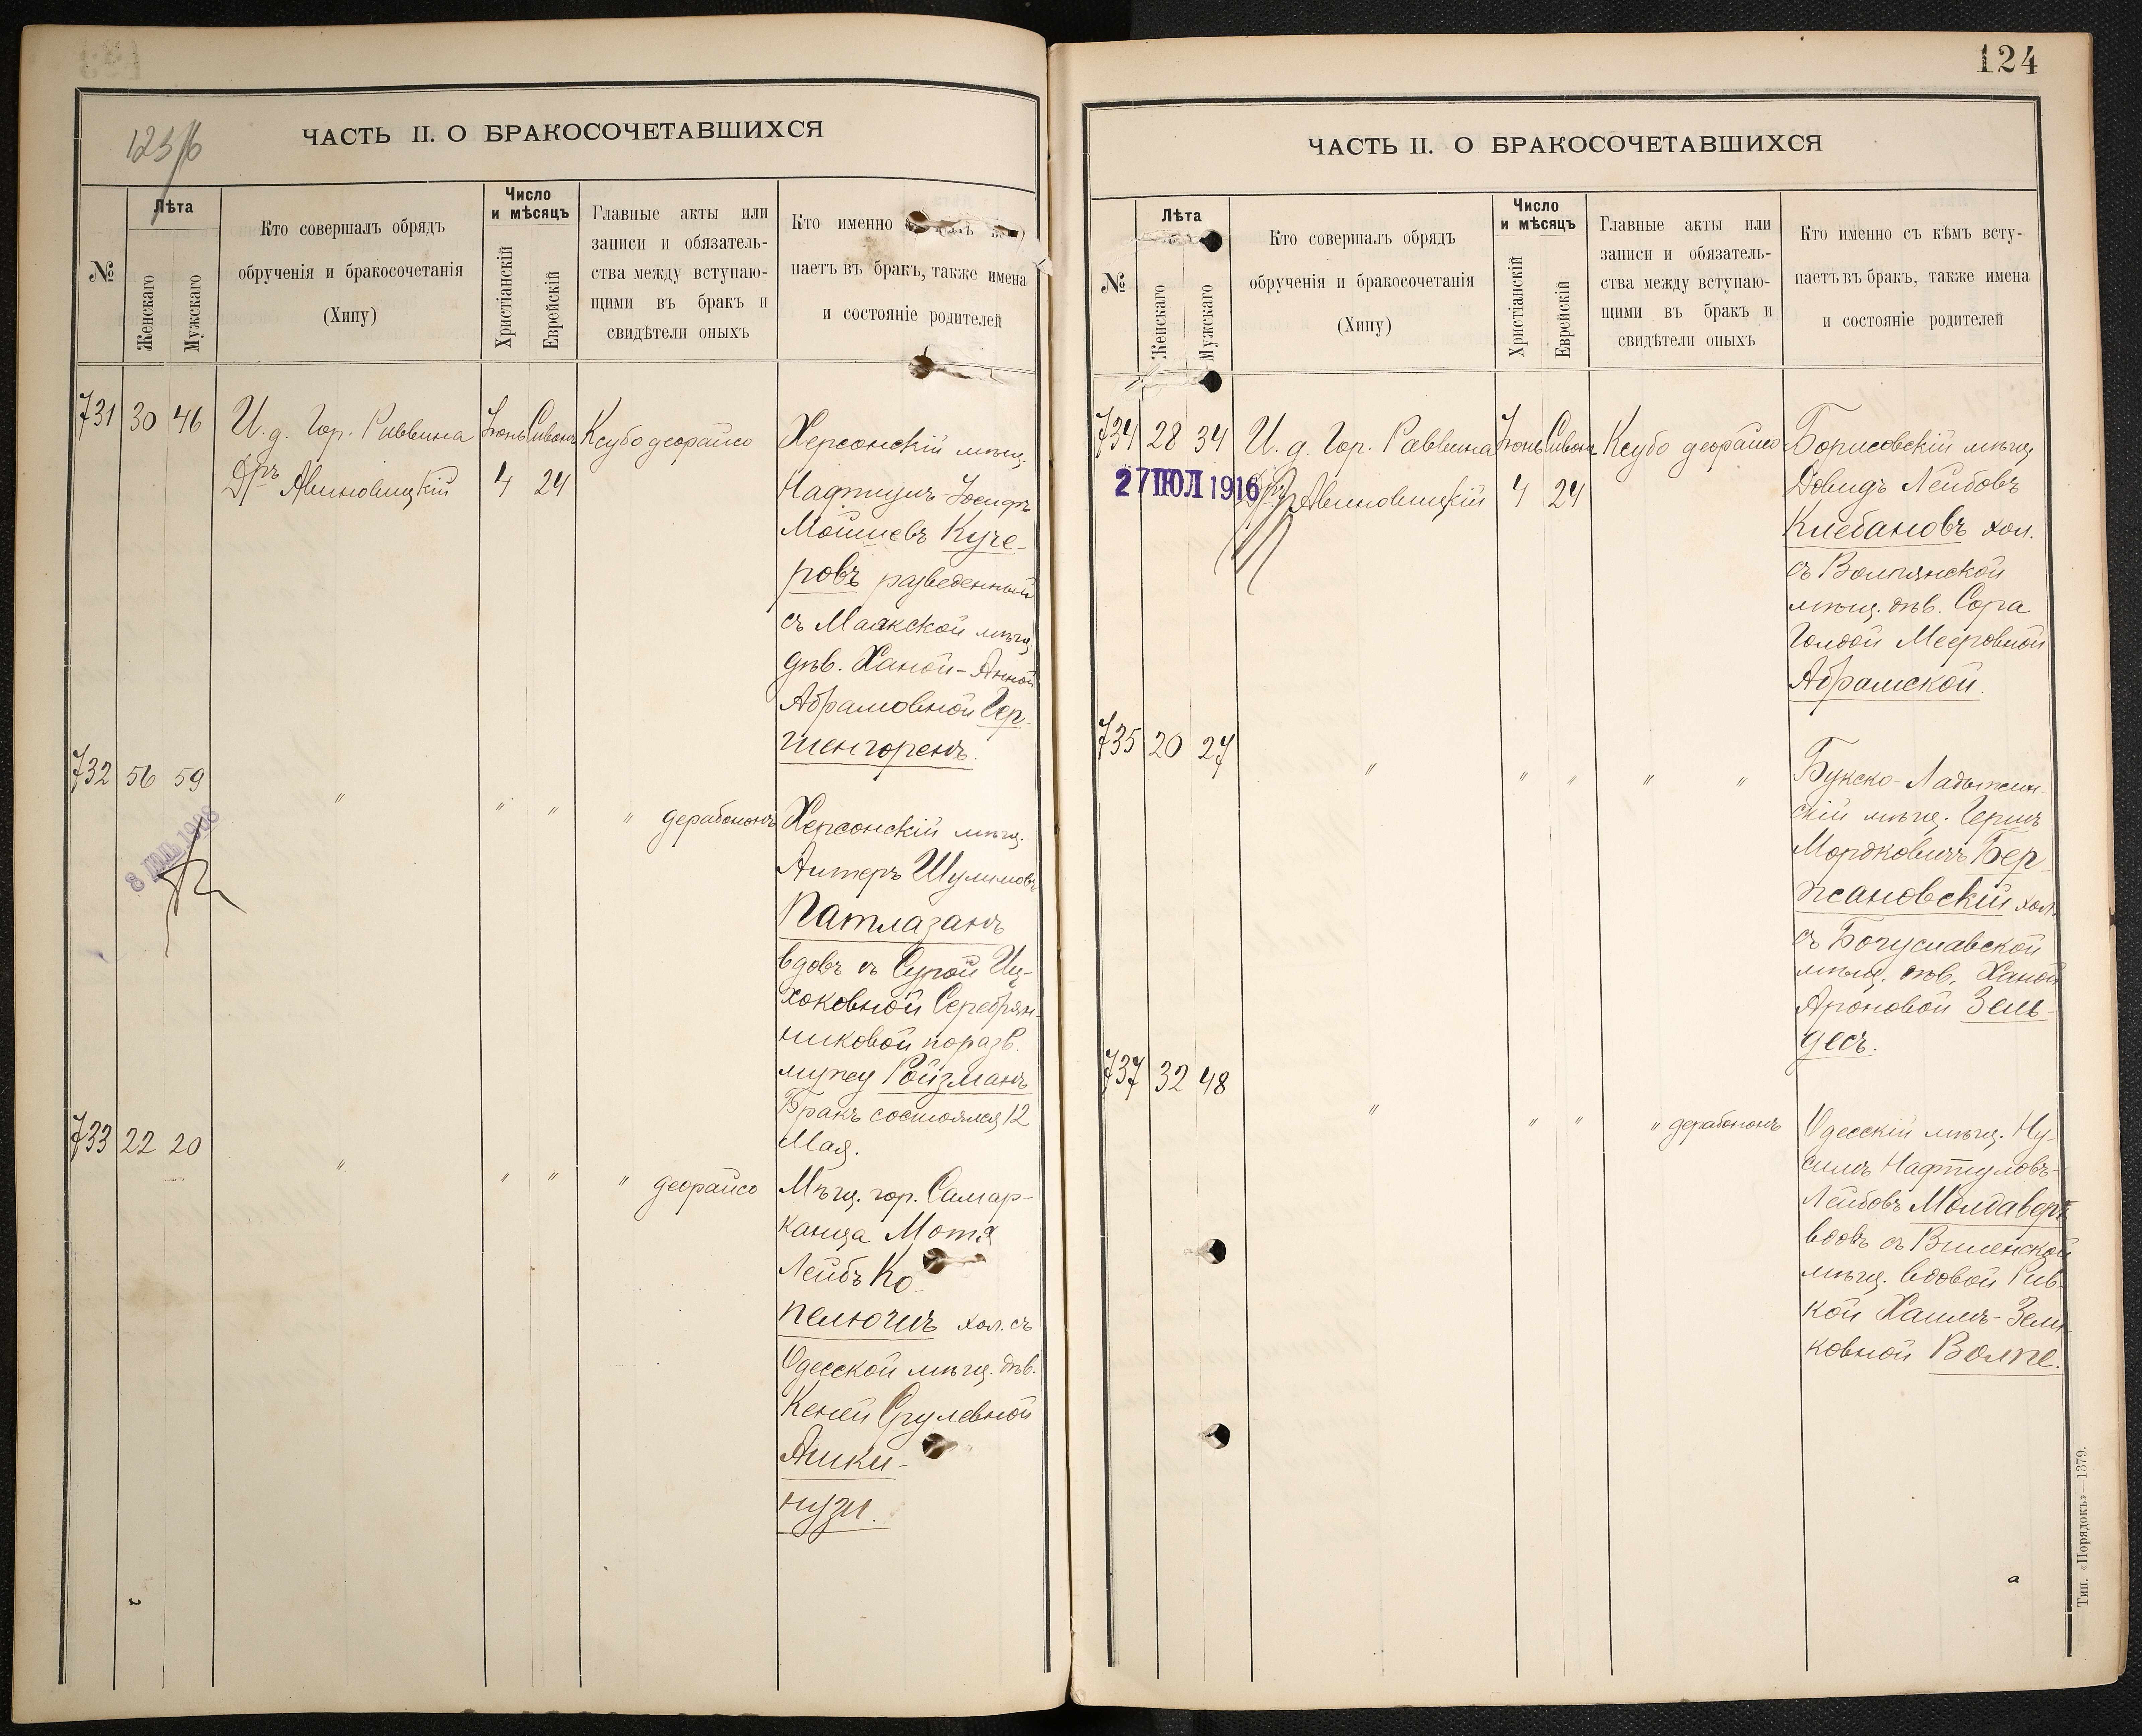 123/б
ЧАСТЬ II. О БРАКОСОЧЕТАВШИХСЯ
№
Лѣта
Женскаго
Мужскаго
Кто совершалъ обрядъ
обрученія и бракосочетанія
(Хипу)
Число
и мѣсяцъ
Христіанскій
Еврейскій
Главные акты или
записи и обязатель-
ства между вступаю-
щими въ бракъ и
свидѣтели оныхъ
Кто именно
паетъ въ бракъ, также имена
и состояніе родителей
731 30 46
И. д. Гор. Раввина
Др. Авиновицкій
Іюнь Сивонъ
4 24
Ксубо деорайсо
Херсонскій мѣщ.
Нафтулъ-Іосифъ
Мошиевъ Куче-
ровъ разведенный
съ Маякской мѣщ.
дѣв. Ханой-Анной
Абрамовной Гер-
шенгоренъ.
732 56 59
8 1908
" " " " дерабононъ
Херсонскій мѣщ.
Алтеръ Шулимовъ
Патлазанъ
вдовъ съ Сурой Иц-
хоковной Серебрян-
никовой по разв.
мужу Ройзманъ
Бракъ состоялся 12
Мая.
733 22 20
" " " " деорайсо
Мѣщ. гор. Самар-
канда Мотя
Лейбъ Ко-
пелючъ хол. съ
Одесской мѣщ. дѣв.
Кеней Срулевной
Ашки-
нузи.
124
ЧАСТЬ II. О БРАКОСОЧЕТАВШИХСЯ
№
Лѣта
Женскаго
Мужскаго
Кто совершалъ обрядъ
обрученія и бракосочетанія
(Хипу)
Число
и мѣсяцъ
Христіанскій
Еврейскій
Главные акты или
записи и обязатель-
ства между вступаю-
щими въ бракъ и
свидѣтели оныхъ
Кто именно съ кѣмъ всту-
паетъ въ бракъ, также имена
и состояніе родителей
734 28 34
27 ІЮЛ 1916
И. д. Гор. Раввина
Др. Авиновицкій
Іюнь Сивонъ
4 24
Ксубо деорайсо
Борисовскій мѣщ.
Довидъ Лейбовъ
Клебановъ хол.
съ Волпянской
мѣщ. дѣв. Сора
Голдой Мееровной
Абрамской.
735 20 27
" " " " "
Букско-Ладыжин-
скій мѣщ. Гершъ
Мордковичъ Бер-
жсановскій хол.
съ Богуславской
мѣщ. дѣв. Ханой
Ароновой Зель-
десъ.
737 32 48
" " " " дерабононъ
Одесскій мѣщ. Ну-
симъ Нафтуловъ-
Лейбовъ Молдаверъ
вдовъ съ Виленской
мѣщ. вдовой Рив-
кой Хаимъ-Зелі-
ковной Волпе.
Тип. «Порядокъ»—1379.